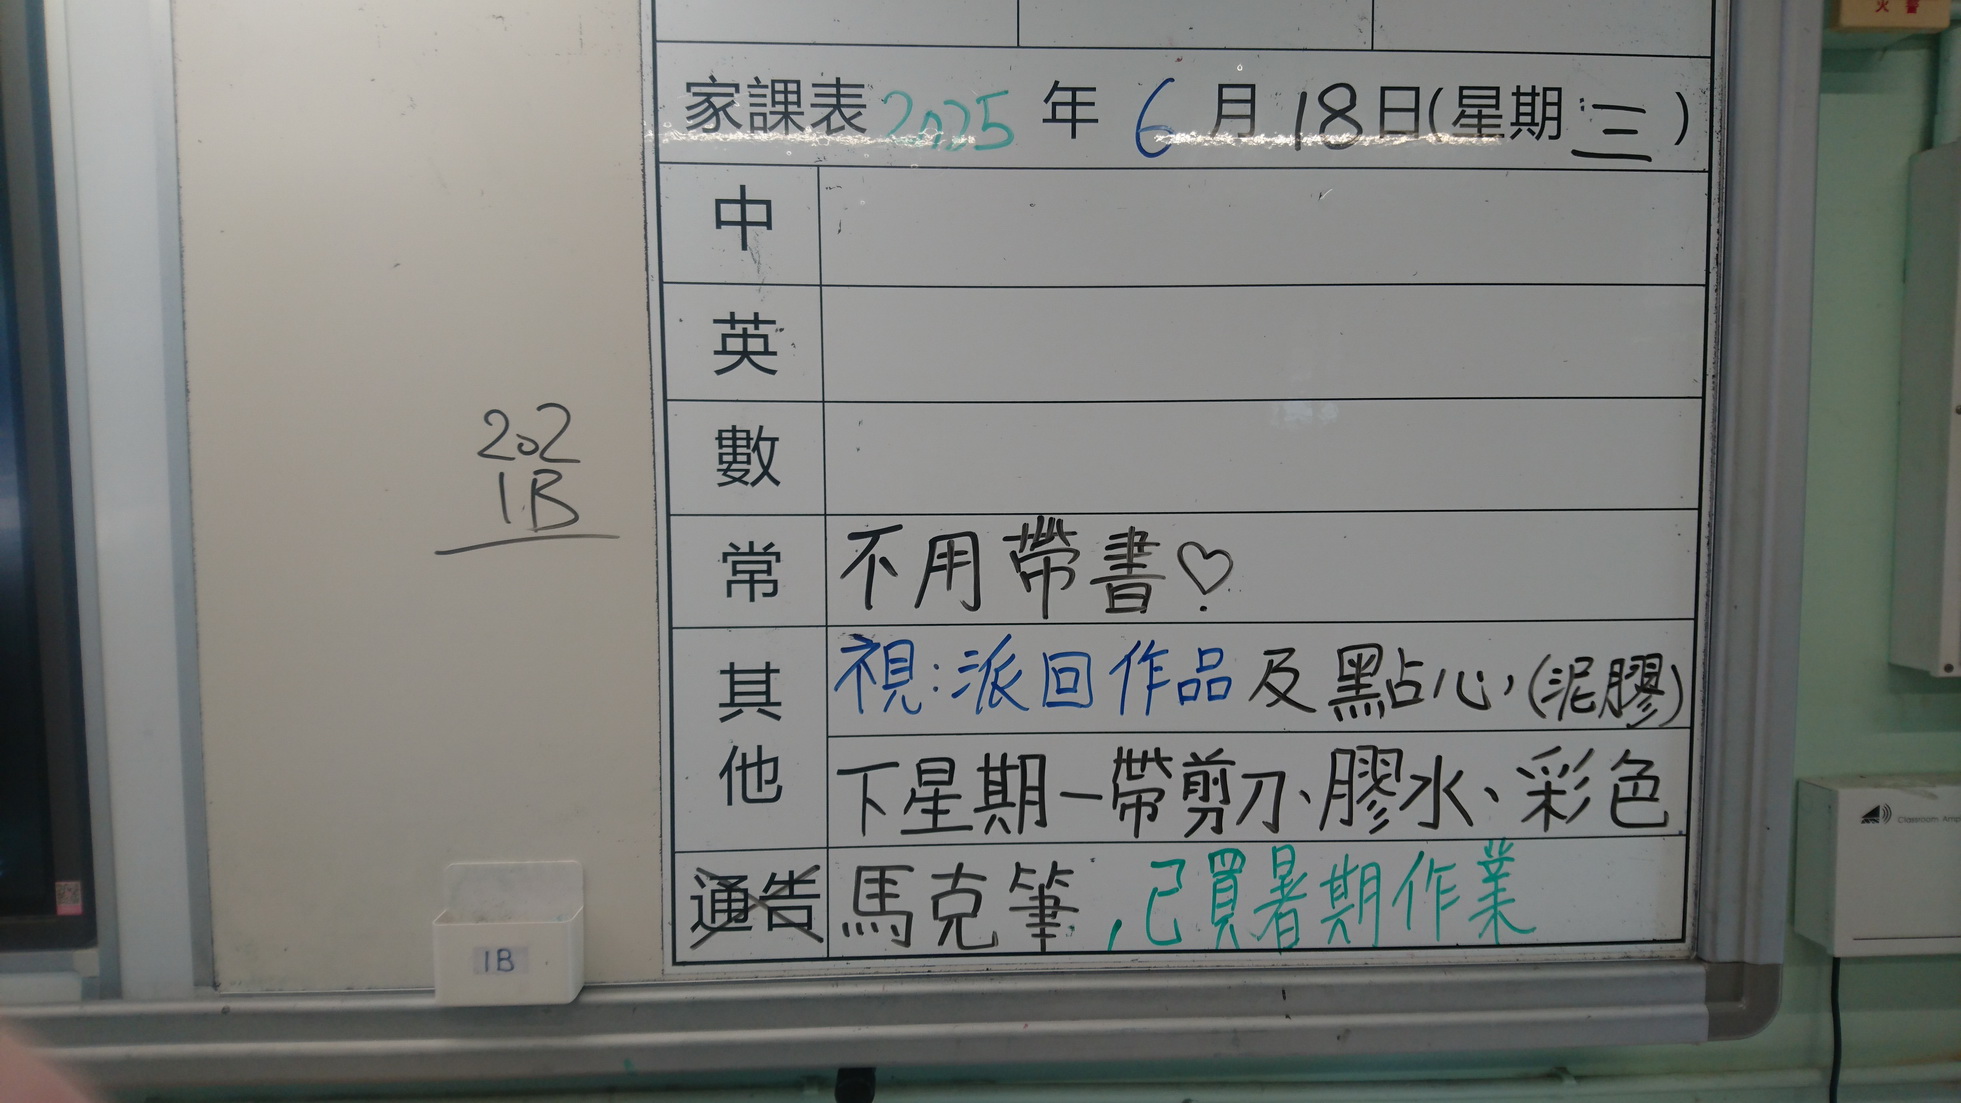 火警
家課表 2025 年 6 月 18 日(星期 三)
中
英
數
202
1B
常 不用帶書♡
其他 視:派回作品及點心,(泥膠)
下星期一帶剪刀、膠水、彩色
通告 馬克筆,已買暑期作業
1B
Classroom Amp